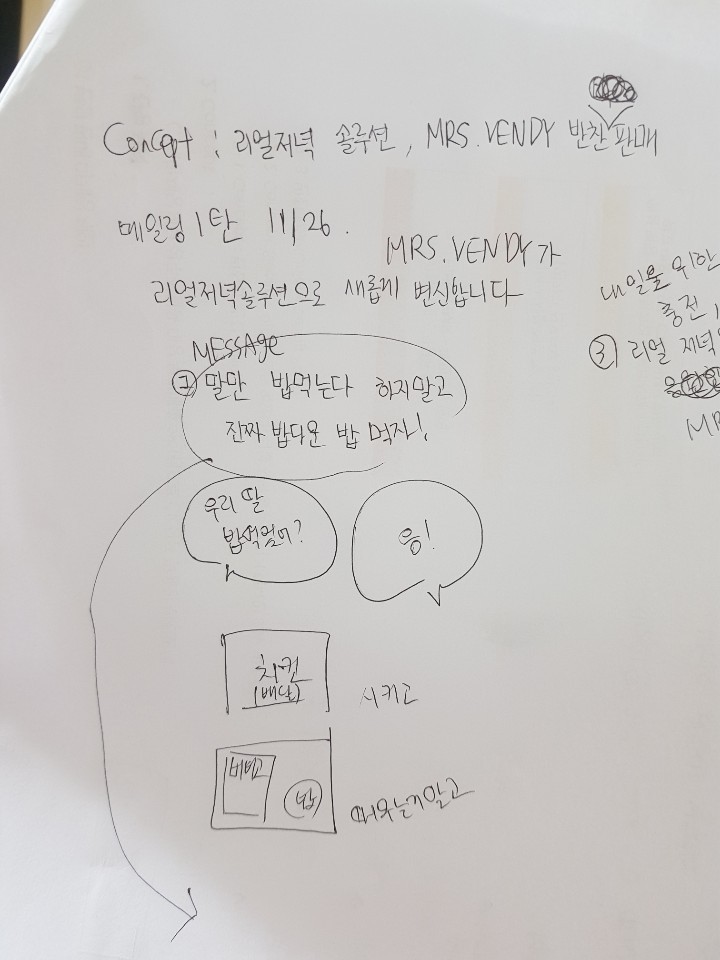 Concept : 리얼저녁 솔루션, MRS. VENDY 반찬 판매
메일링 1탄 11/26.
MRS. VENDY가
리얼저녁솔루션으로 새롭게 변신합니다
MESSAge
② 말만 밥먹는다 하지말고
진짜 밥다운 밥 먹자!
우리 딸
밥먹었어?
응!
치킨
(배달)
시키고
비비고
밥
때우는거말고
내일을 위한
충전
③ 리얼 저녁
MR